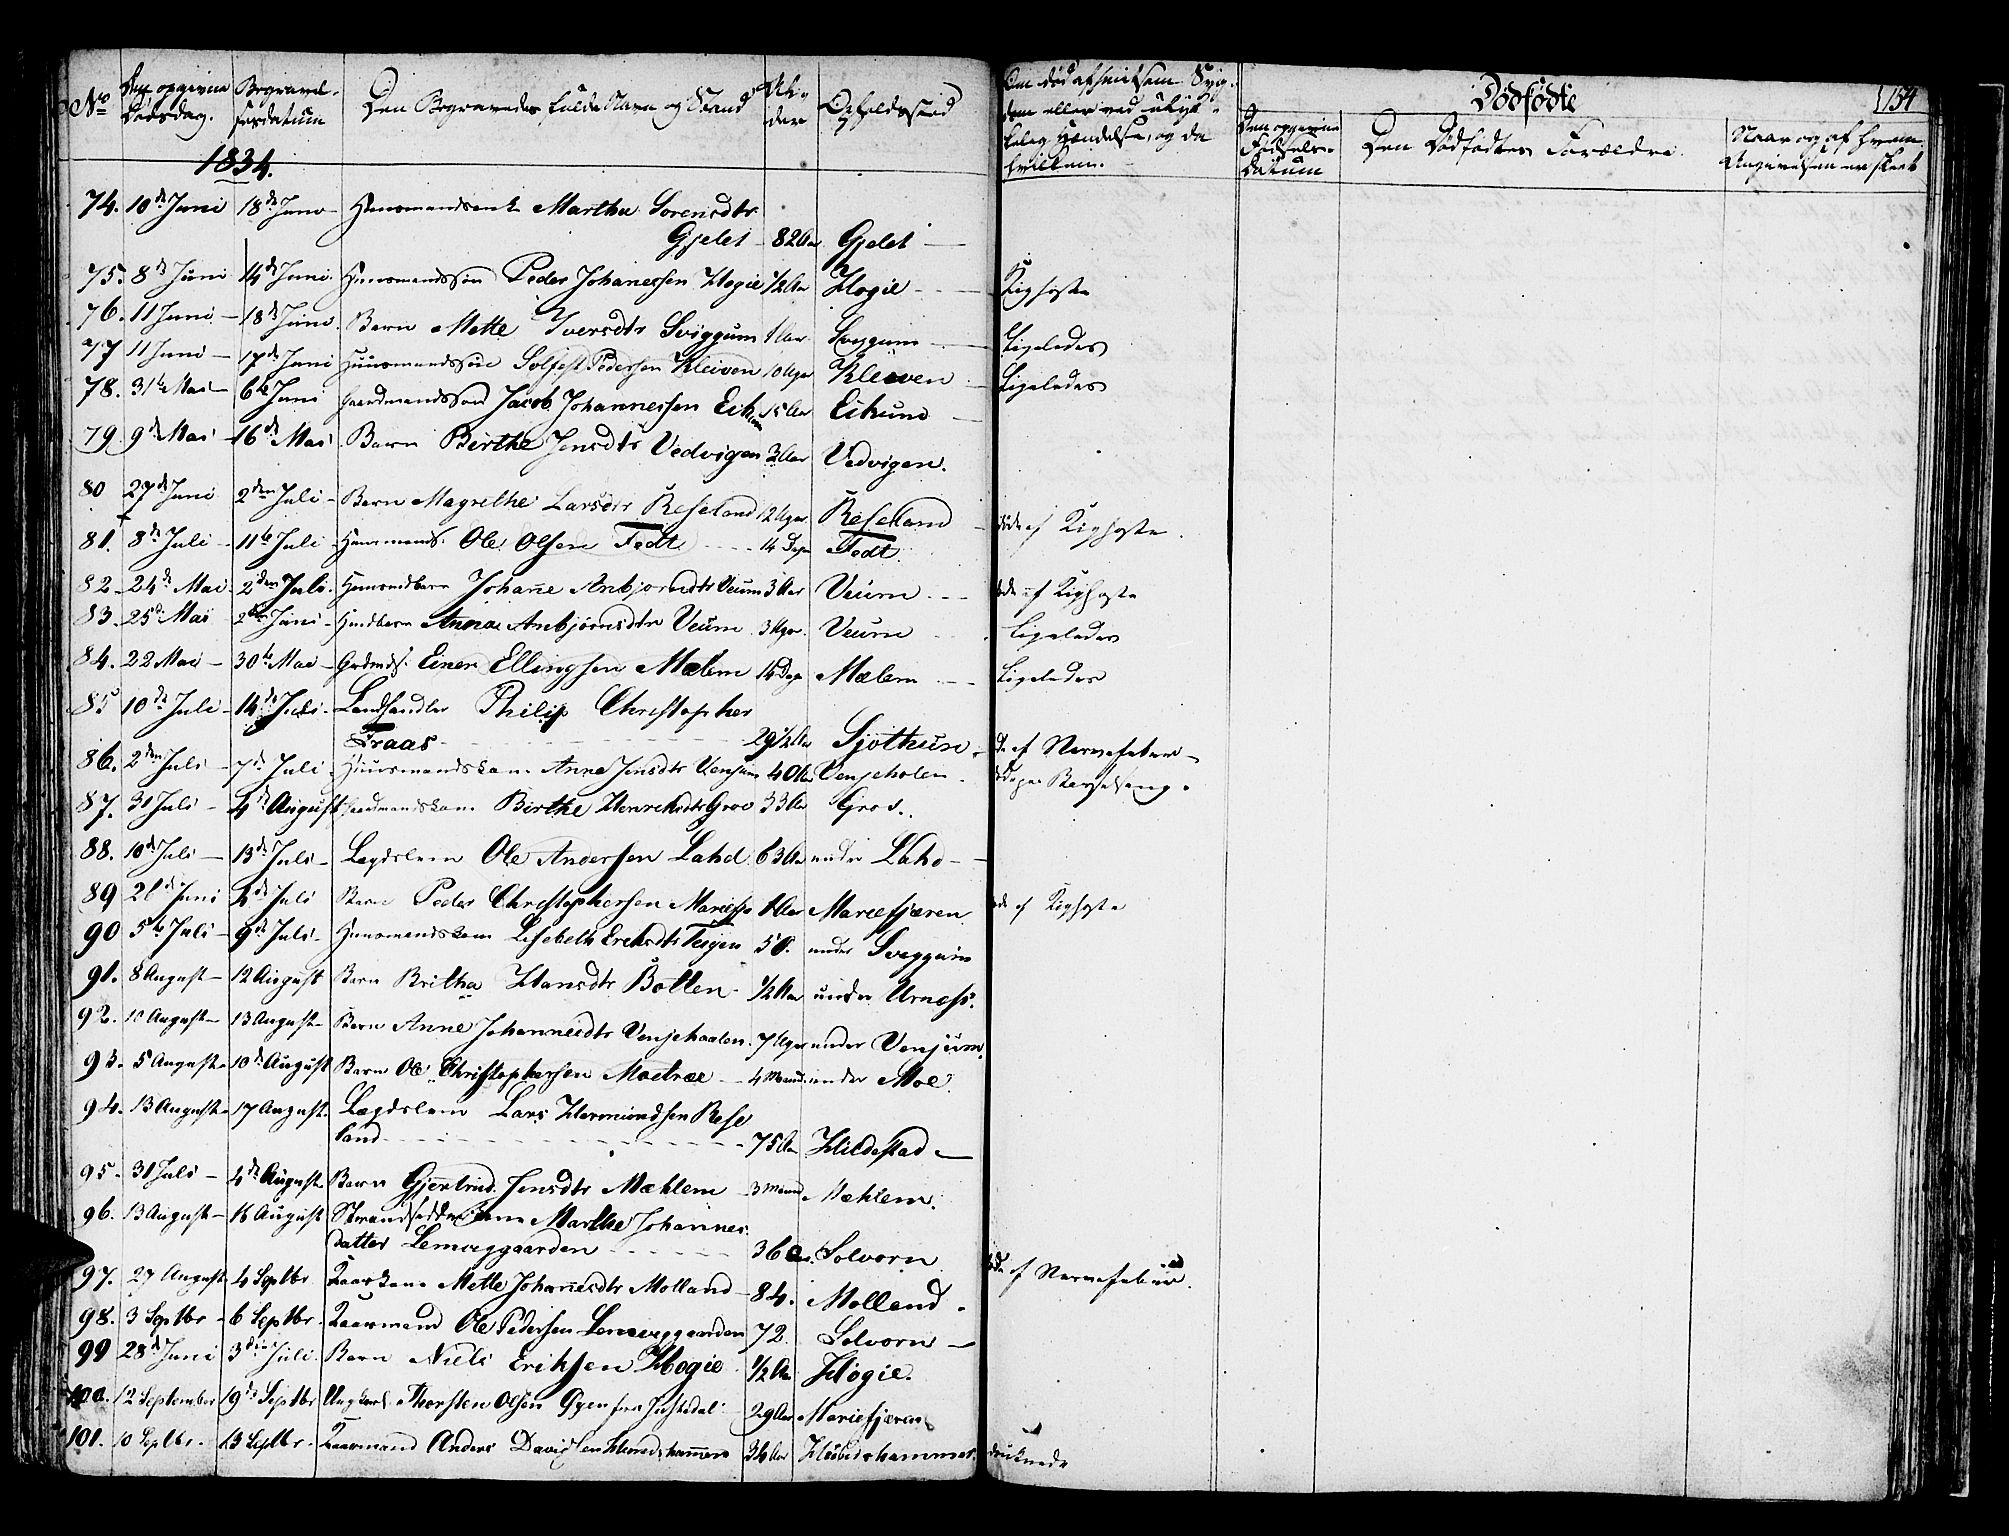 No Den opgivne Dødsdag. Begravelsesdatum Den Begravedes fulde Navn og Stand Alder Opholdssted Om død af smitsom Sygdom eller ved ulykkelig Hændelse, og da hvilken.
Dødfødte
154
Den opgivne Fødsels-Datum Den Dødfødtes Forældre. Naar og af hvem Angivelsen er skeet
1834.
74. 10de Juni 18de Juni Huusmandsenk Martha Sorensdtr
Gjelet 82 Aar Gjelet
75. 8de Juni 14de Juni. Huusmandssøn Peder Johanessen Høgie 1/2 Aar Høgie Kighoste
76. 11 Juni 18de Juni. Barn Mette Iversdtr Sviggum 1 Aar Svegum Ligeledes
77 11 Juni 17de Juni Huusmandssøn Solfest Pedersen Kleiven 10 Uger Kleiven Ligeledes
78. 31te Mai 6te Juni Gaardmandssøn Jacob Johannessen Eikum 15 Aar Eikum
79. 9de Mai 16de Mai Barn Birthe Jensdtr Vedvigen 3 Aar Vedvigen.
80 27de Juni 2den Juli Barn Magrethe Larsdtr Røseland 12 Uger Røseland død af Kighoste.
81. 8de Juli 11te Juli Huusmands. Ole Olsen Fedt 14 Dage Fedt
82. 24de Mai 2den Juli. Huusmdbarn Johane Anbjornsdtr Veum 3 Aar Veum døde af Kighoste
83. 25de Mai 2den Juni Husmdbarn Anna Anbjørnsdtr Veum 3 Uger. Veum Ligeledes
84. 22 Mai 30te Mai Grdmds. Einer Ellingsen Mælem 14 Dage Mælem Ligeledes
85 10de Juli 14de Juli Landhandler Philip Christopher
Fraas 29 1/2 Aar Sjøthun død af Nervefeber
86. 2den Juli 7de Juli Huusmandskone Anne Jensdtr Venjum 40 Aar Venjeholen Barselseng.
87. 31 Juli 4de August Gaardmandskone Birthe Henrichsdtr Grov 33 Aar Grov.
88. 10de Juli 13de Juli Lægdslem Ole Andersen Lahd 63 Aar under Lahd
89 21de Juni 2de Juli Barn Peder Christophersen Mariefj. 1 Aar Mariefjæren døde af Kighoste
90 5te Juli 9de Juli Huusmandskone Lisebeth Erichsdtr Teigen 50. under Sveggum
91. 8 August 12 August Barn Britha Hansdtr Botten 1/2 Aar under Urness.
92. 10 August 13 August Barn Anne Johannesdtr Venjehaalen 7 Uger under Venjum.
93. 5 August 10de August Barn Ole Christophersen Moetræe 4 Maand. under Moe.
94. 13 August 17 August. Lægdslem Lars Hermundsen Røse
land 75 Aar Hildestad
95. 31 Juli 4de August Barn Gjertrud Jensdtr Mæhlem 3 Maand Mæhlem.
96. 13 August 16 August Strandsidderkone Marthe Johannes
datter Lemveggaarden 36 Aar Solvorn
97. 27 August 4 Septbr Kaarkone Mette Johannesdtr Molland 84. Molland død af Nervefeber.
98. 3 Septbr 6 Septbr. Kaarmand Ole Pedersen Lemveggaarden 72 Solvorn
99 28de Juni 3die Juli. Barn Niels Eriksen Høgie 1/2 Aar Høgie.
100. 12 September 19de Septbr Ungkarl Thorsten Olsen Øyen fra Justedal 29 Aar Mariefjæren
101. 10 Septbr. 13 Septbr. Kaarmand Anders Davidsen 34 Aar druknede